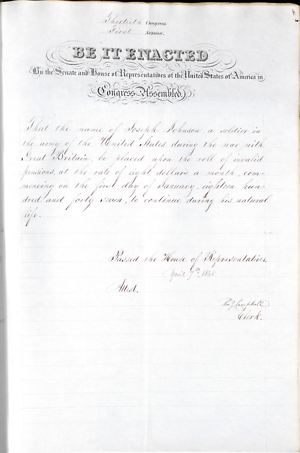 Thirtieth Congress
First Session
BE IT ENACTED
By the Senate and House of Representatives of the United States of America in
Congress Assembled,
That the name of Joseph Johnson a soldier in
the army of the United States during the war with
Great Britain, be placed upon the roll of invalid
pensions at the rate of eight dollars a month, com-
mencing on the first day of January, eighteen hun-
dred and forty seven, to continue during his natural
life.
Passed the House of Representatives
April 7th, 1848.
Attest.
Campbell
Clerk.